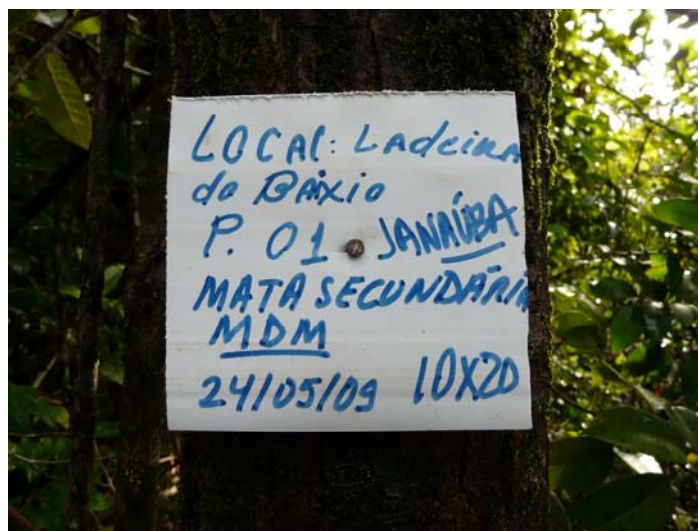 LOCAL: Ladeira
do Baixio
P. 01 JANAÚBA
MATA SECUNDÁRIA
MDM
24/05/09 10X20